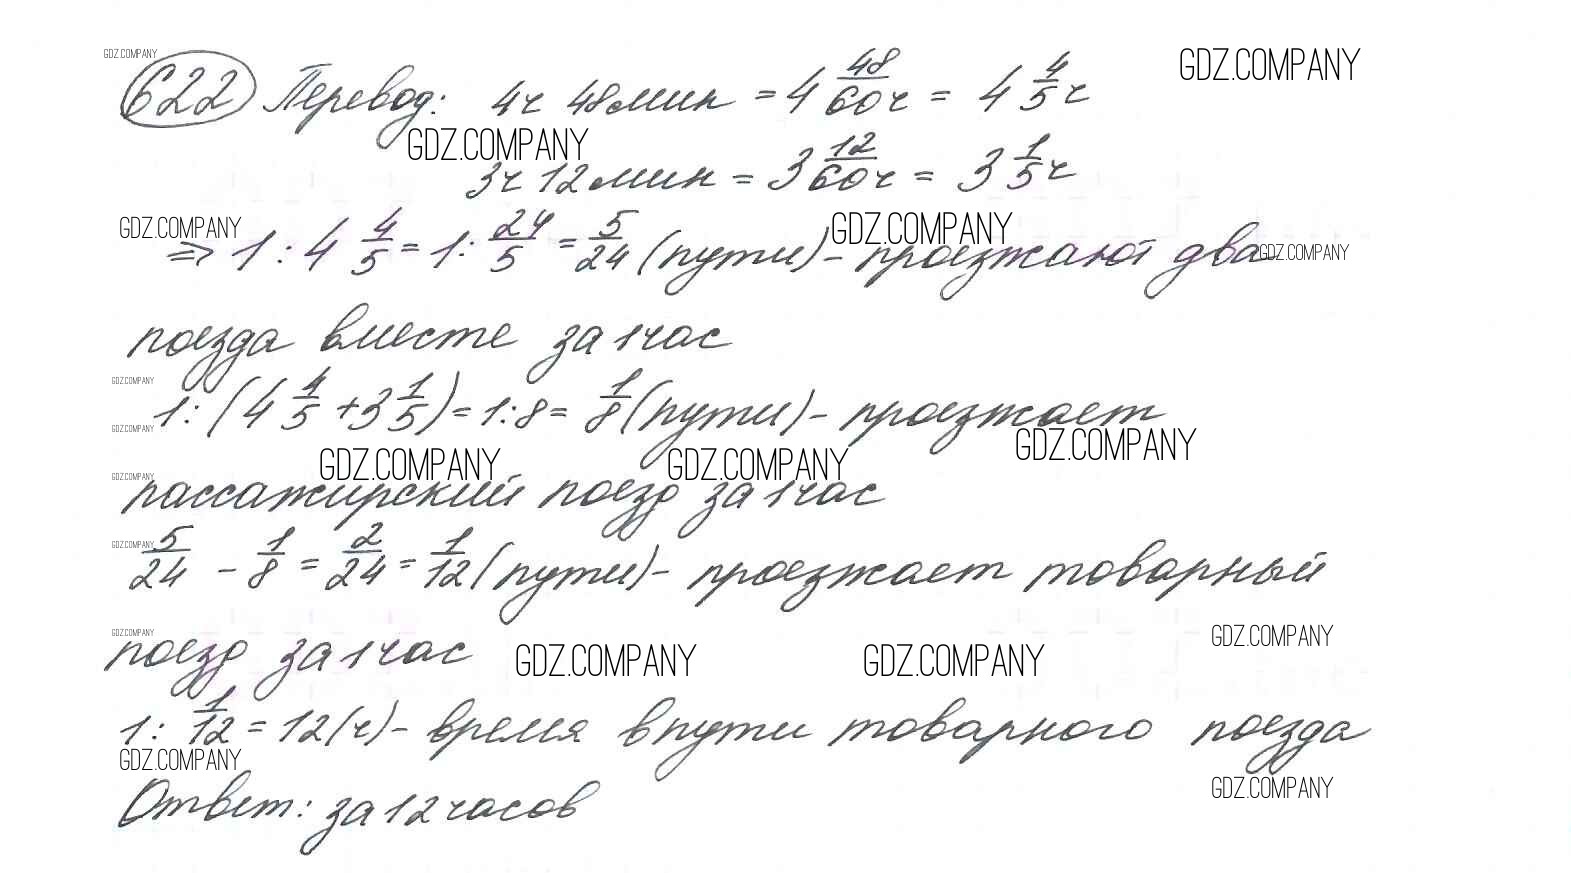 GDZ.COMPANY
622 Перевод: 4ч 48мин = 4 48/60 ч = 4 4/5 ч
GDZ.COMPANY
GDZ.COMPANY
3ч 12мин = 3 12/60 ч = 3 1/5 ч
GDZ.COMPANY GDZ.COMPANY
=> 1 : 4 4/5 = 1 : 24/5 = 5/24 (пути) - проезжают два
GDZ.COMPANY
поезда вместе за 1 час
GDZ.COMPANY
1 : (4 4/5 + 3 1/5) = 1 : 8 = 1/8 (пути) - проезжает
GDZ.COMPANY
GDZ.COMPANY GDZ.COMPANY GDZ.COMPANY
GDZ.COMPANY
пассажирский поезд за 1 час
GDZ.COMPANY
5/24 - 1/8 = 2/24 = 1/12 (пути) - проезжает товарный
GDZ.COMPANY
поезд за 1 час
GDZ.COMPANY GDZ.COMPANY GDZ.COMPANY
1 : 1/12 = 12 (ч) - время в пути товарного поезда
GDZ.COMPANY GDZ.COMPANY
Ответ: за 12 часов